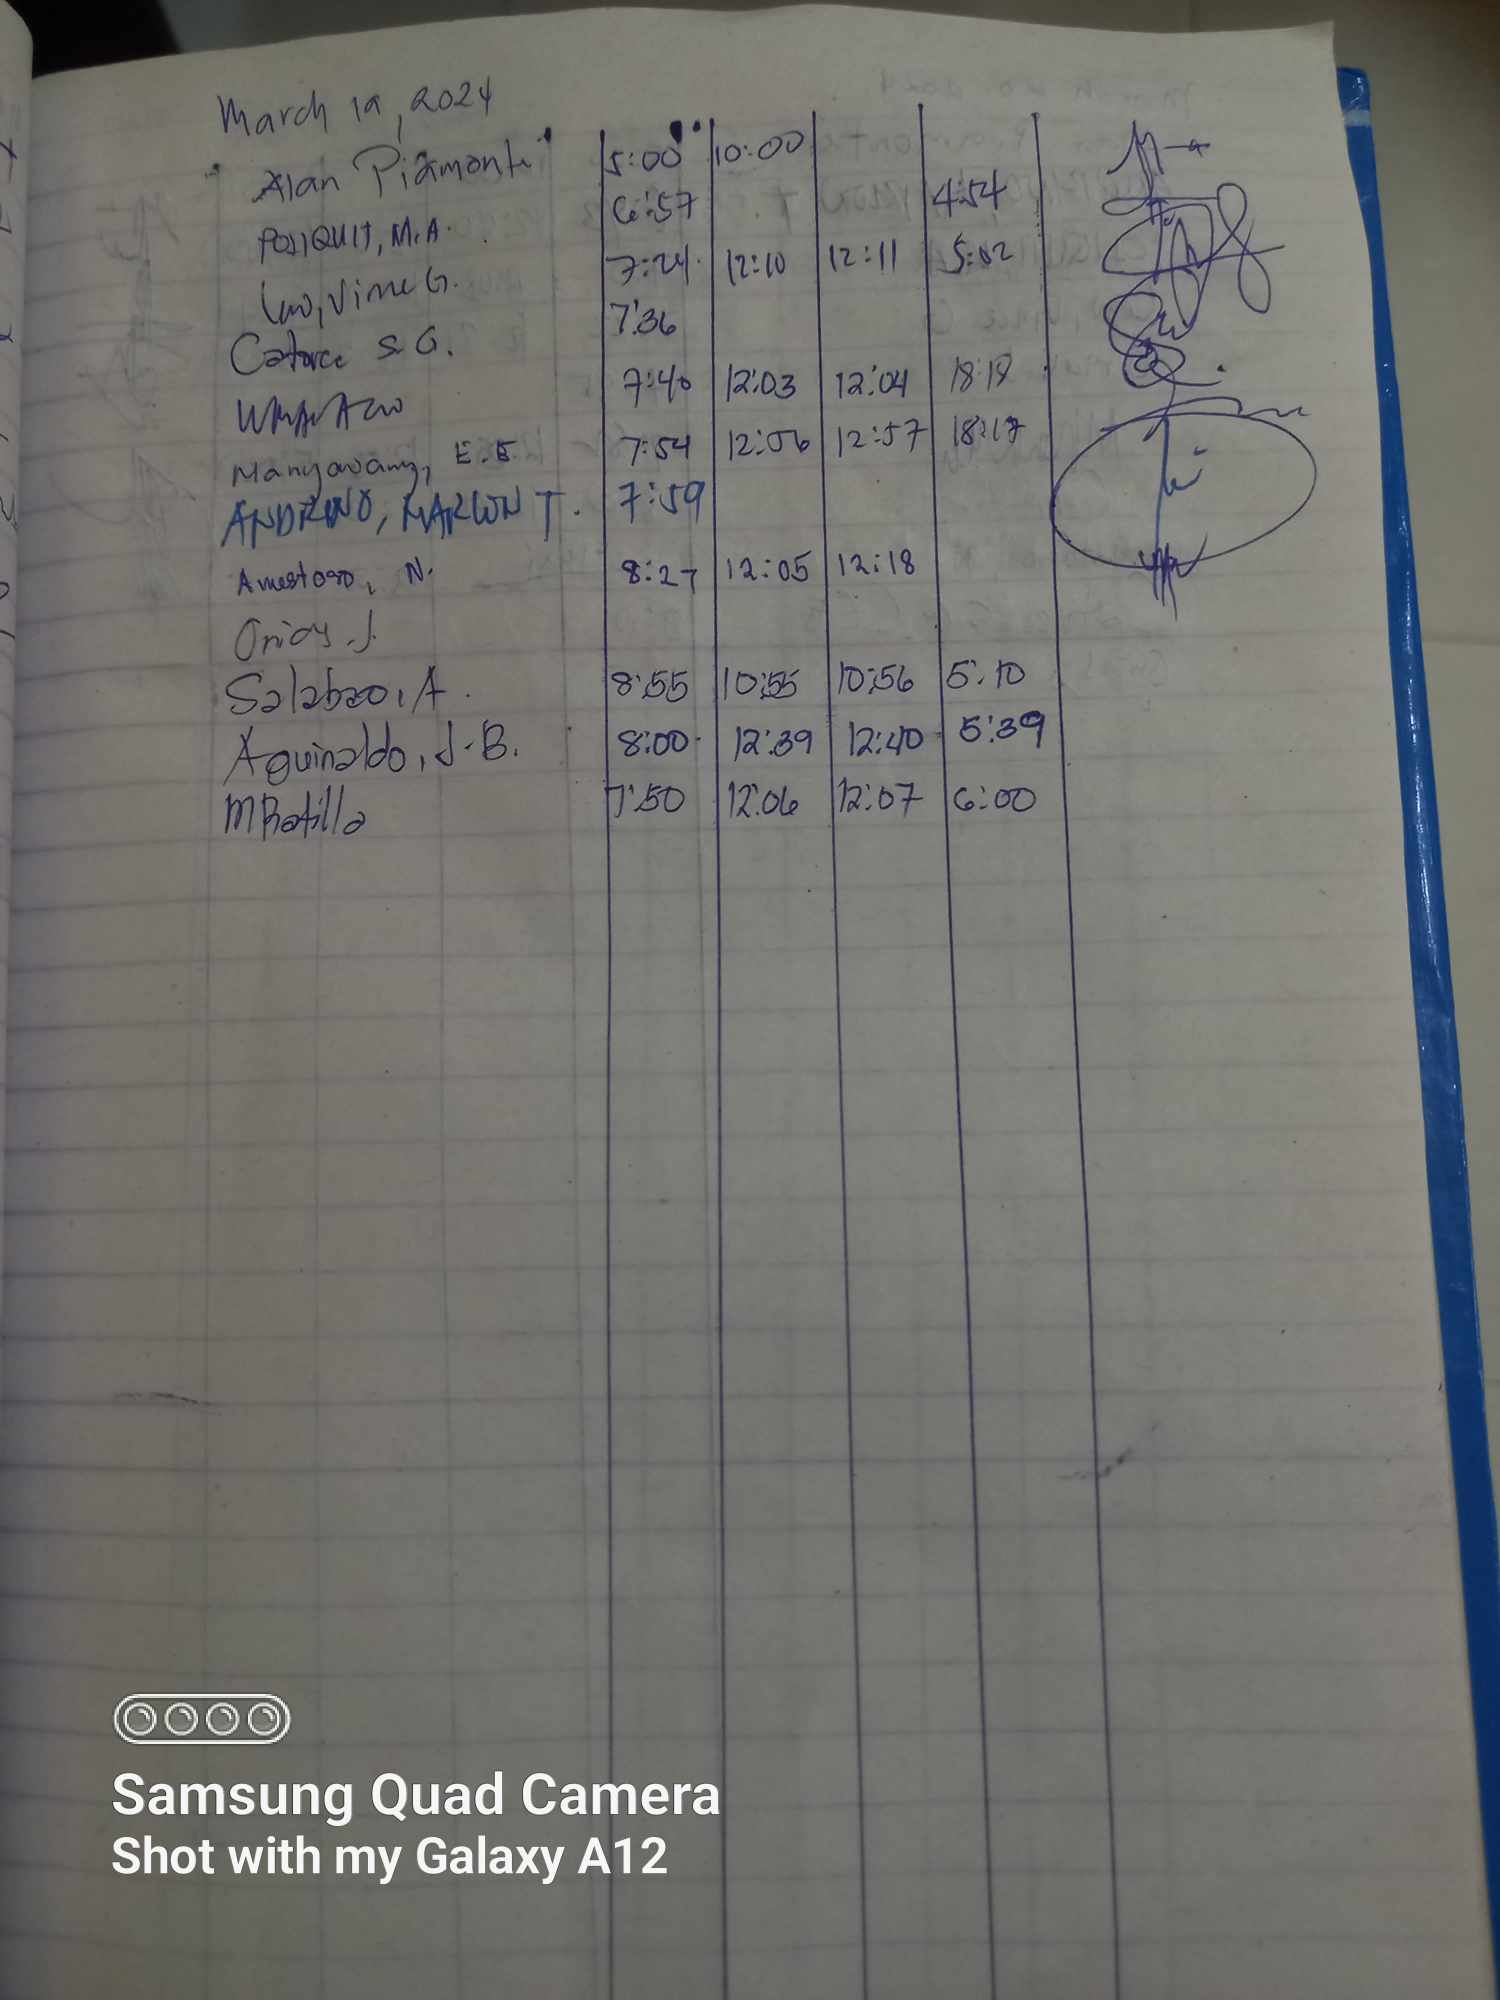 March 19, 2024
Alan Piamonte 5:00 10:00
POSIQUIT, M.A. 6:57 4:54
Vime G. 7:24 12:10 12:11 5:02
Catorce S.G. 7:36
7:40 12:03 12:04 18:18
Manyawang, E.E 7:54 12:56 12:57 18:17
ANDRINO, MARLON T. 7:59
Amestoso, N. 8:27 12:05 12:18
J.
Salabao, A. 8:55 10:55 10:56 5:10
Aguinaldo, J.B. 8:00 12:39 12:40 5:39
MBatilla 7:50 12:06 12:07 6:00
Samsung Quad Camera
Shot with my Galaxy A12